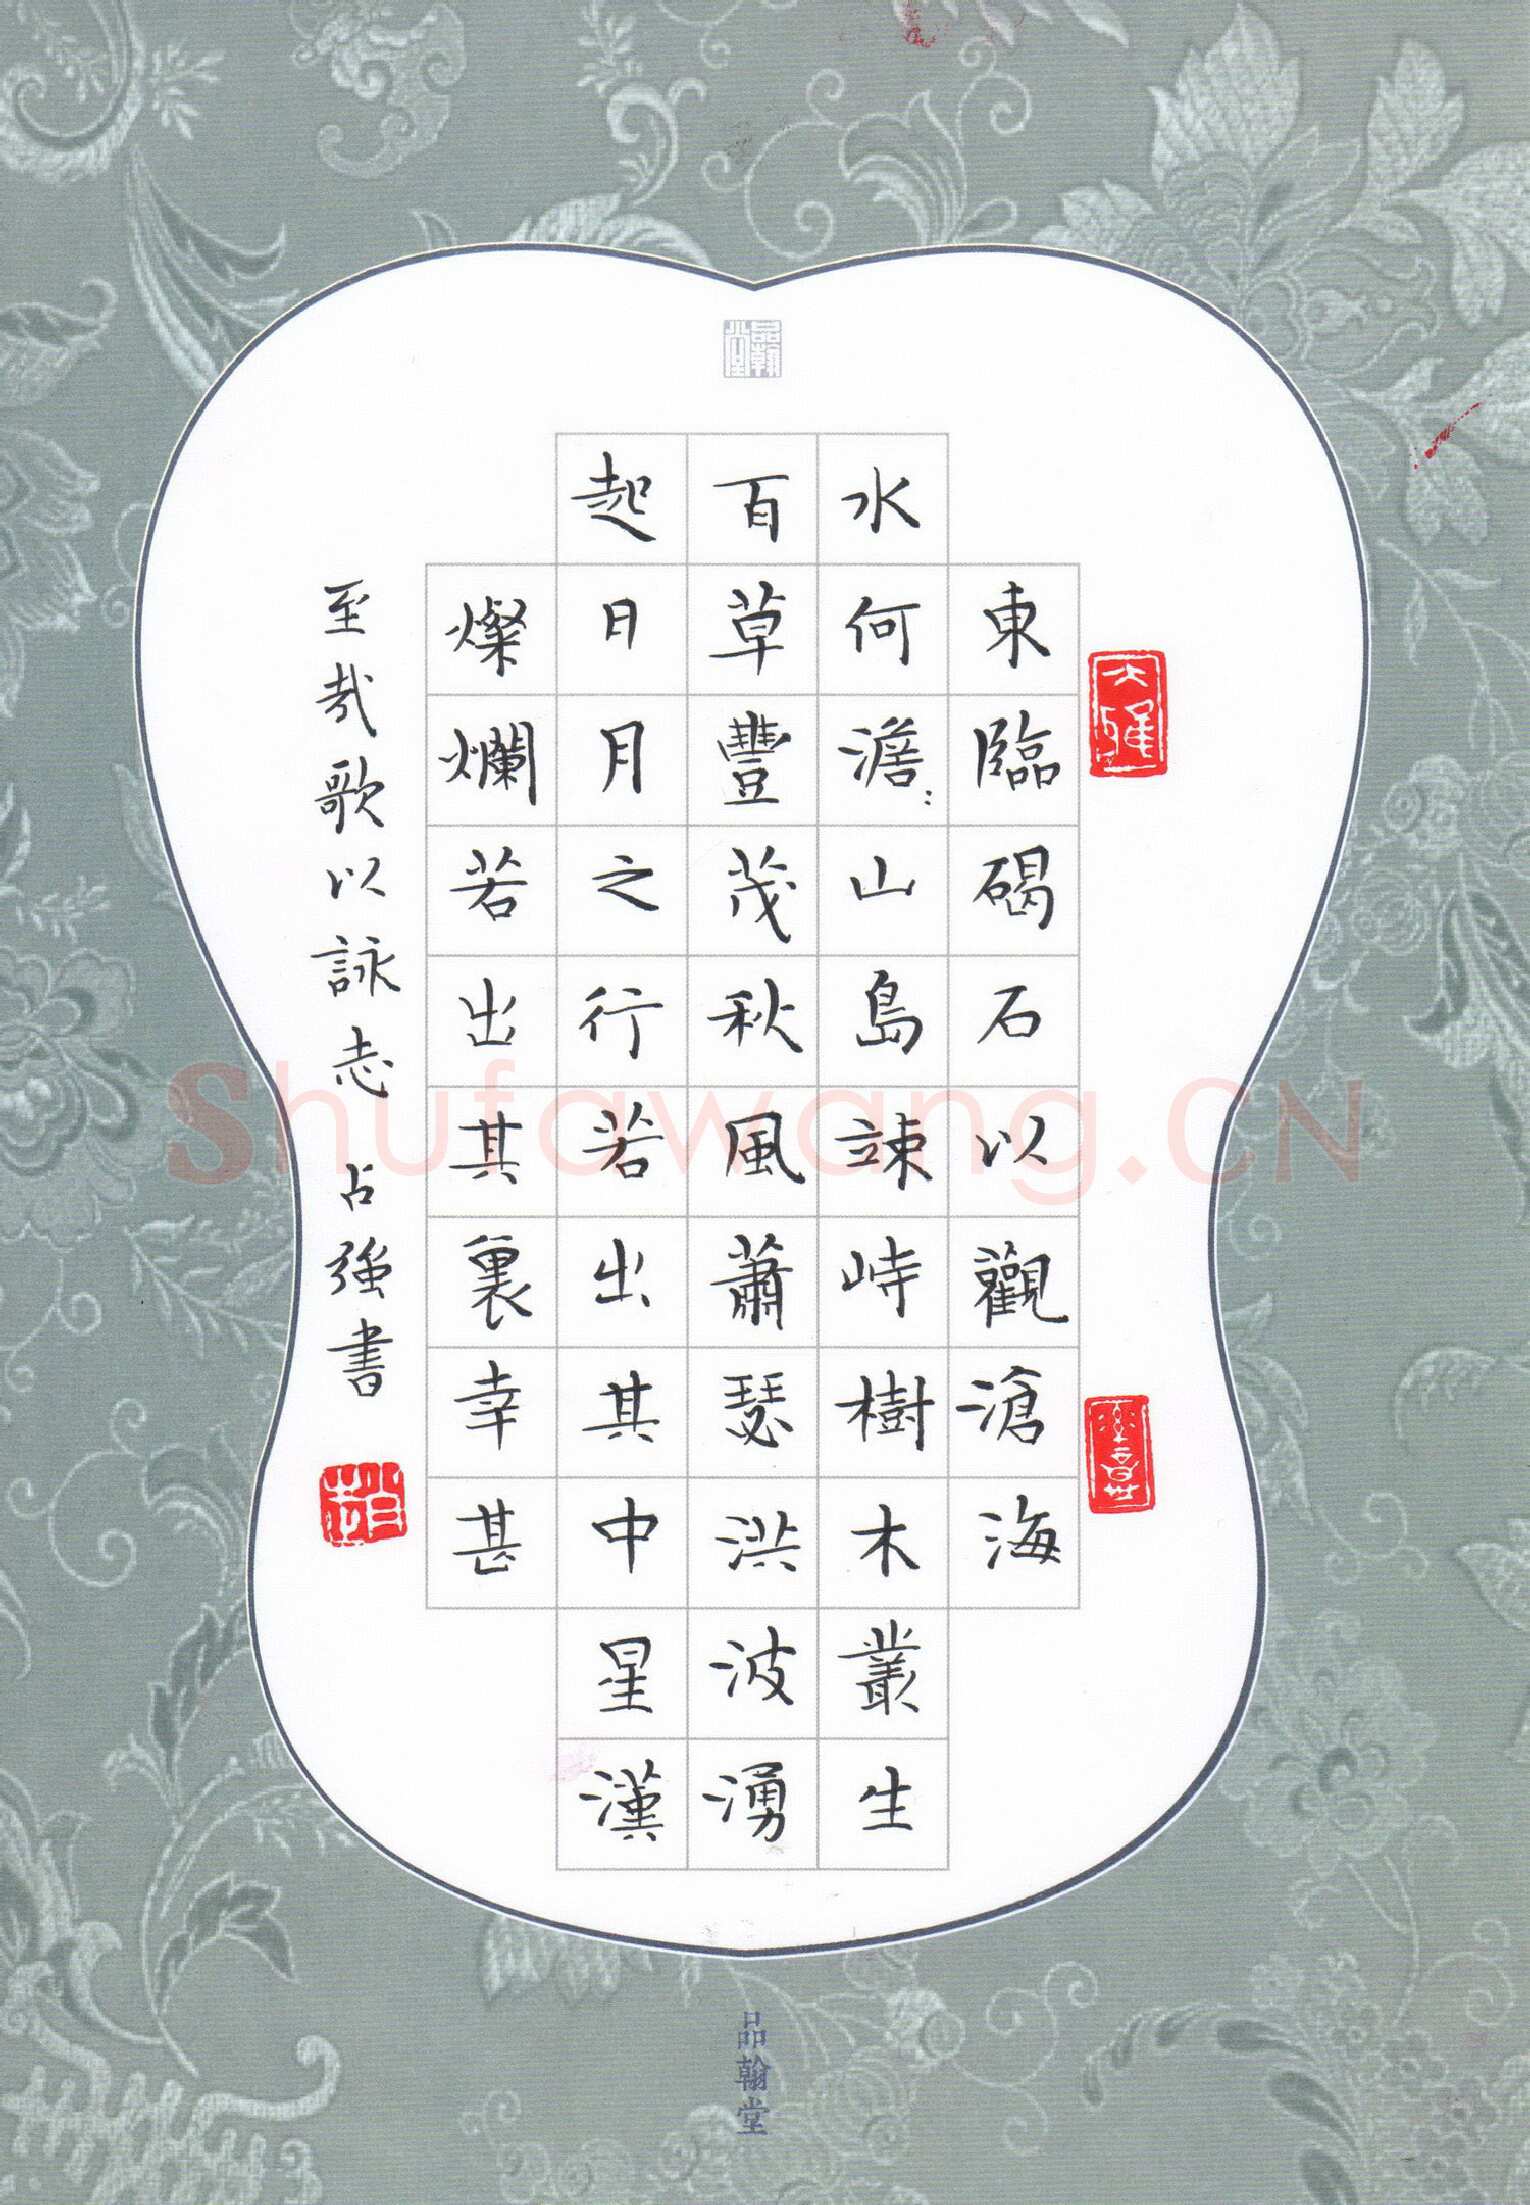 品翰堂
大雅
東臨碣石以觀滄海
水何澹：山島竦峙樹木叢生
百草豐茂秋風蕭瑟洪波湧
起日月之行若出其中星漢
燦爛若出其裏幸甚
至哉歌以詠志 占強書
品翰堂
Shufawang.CN